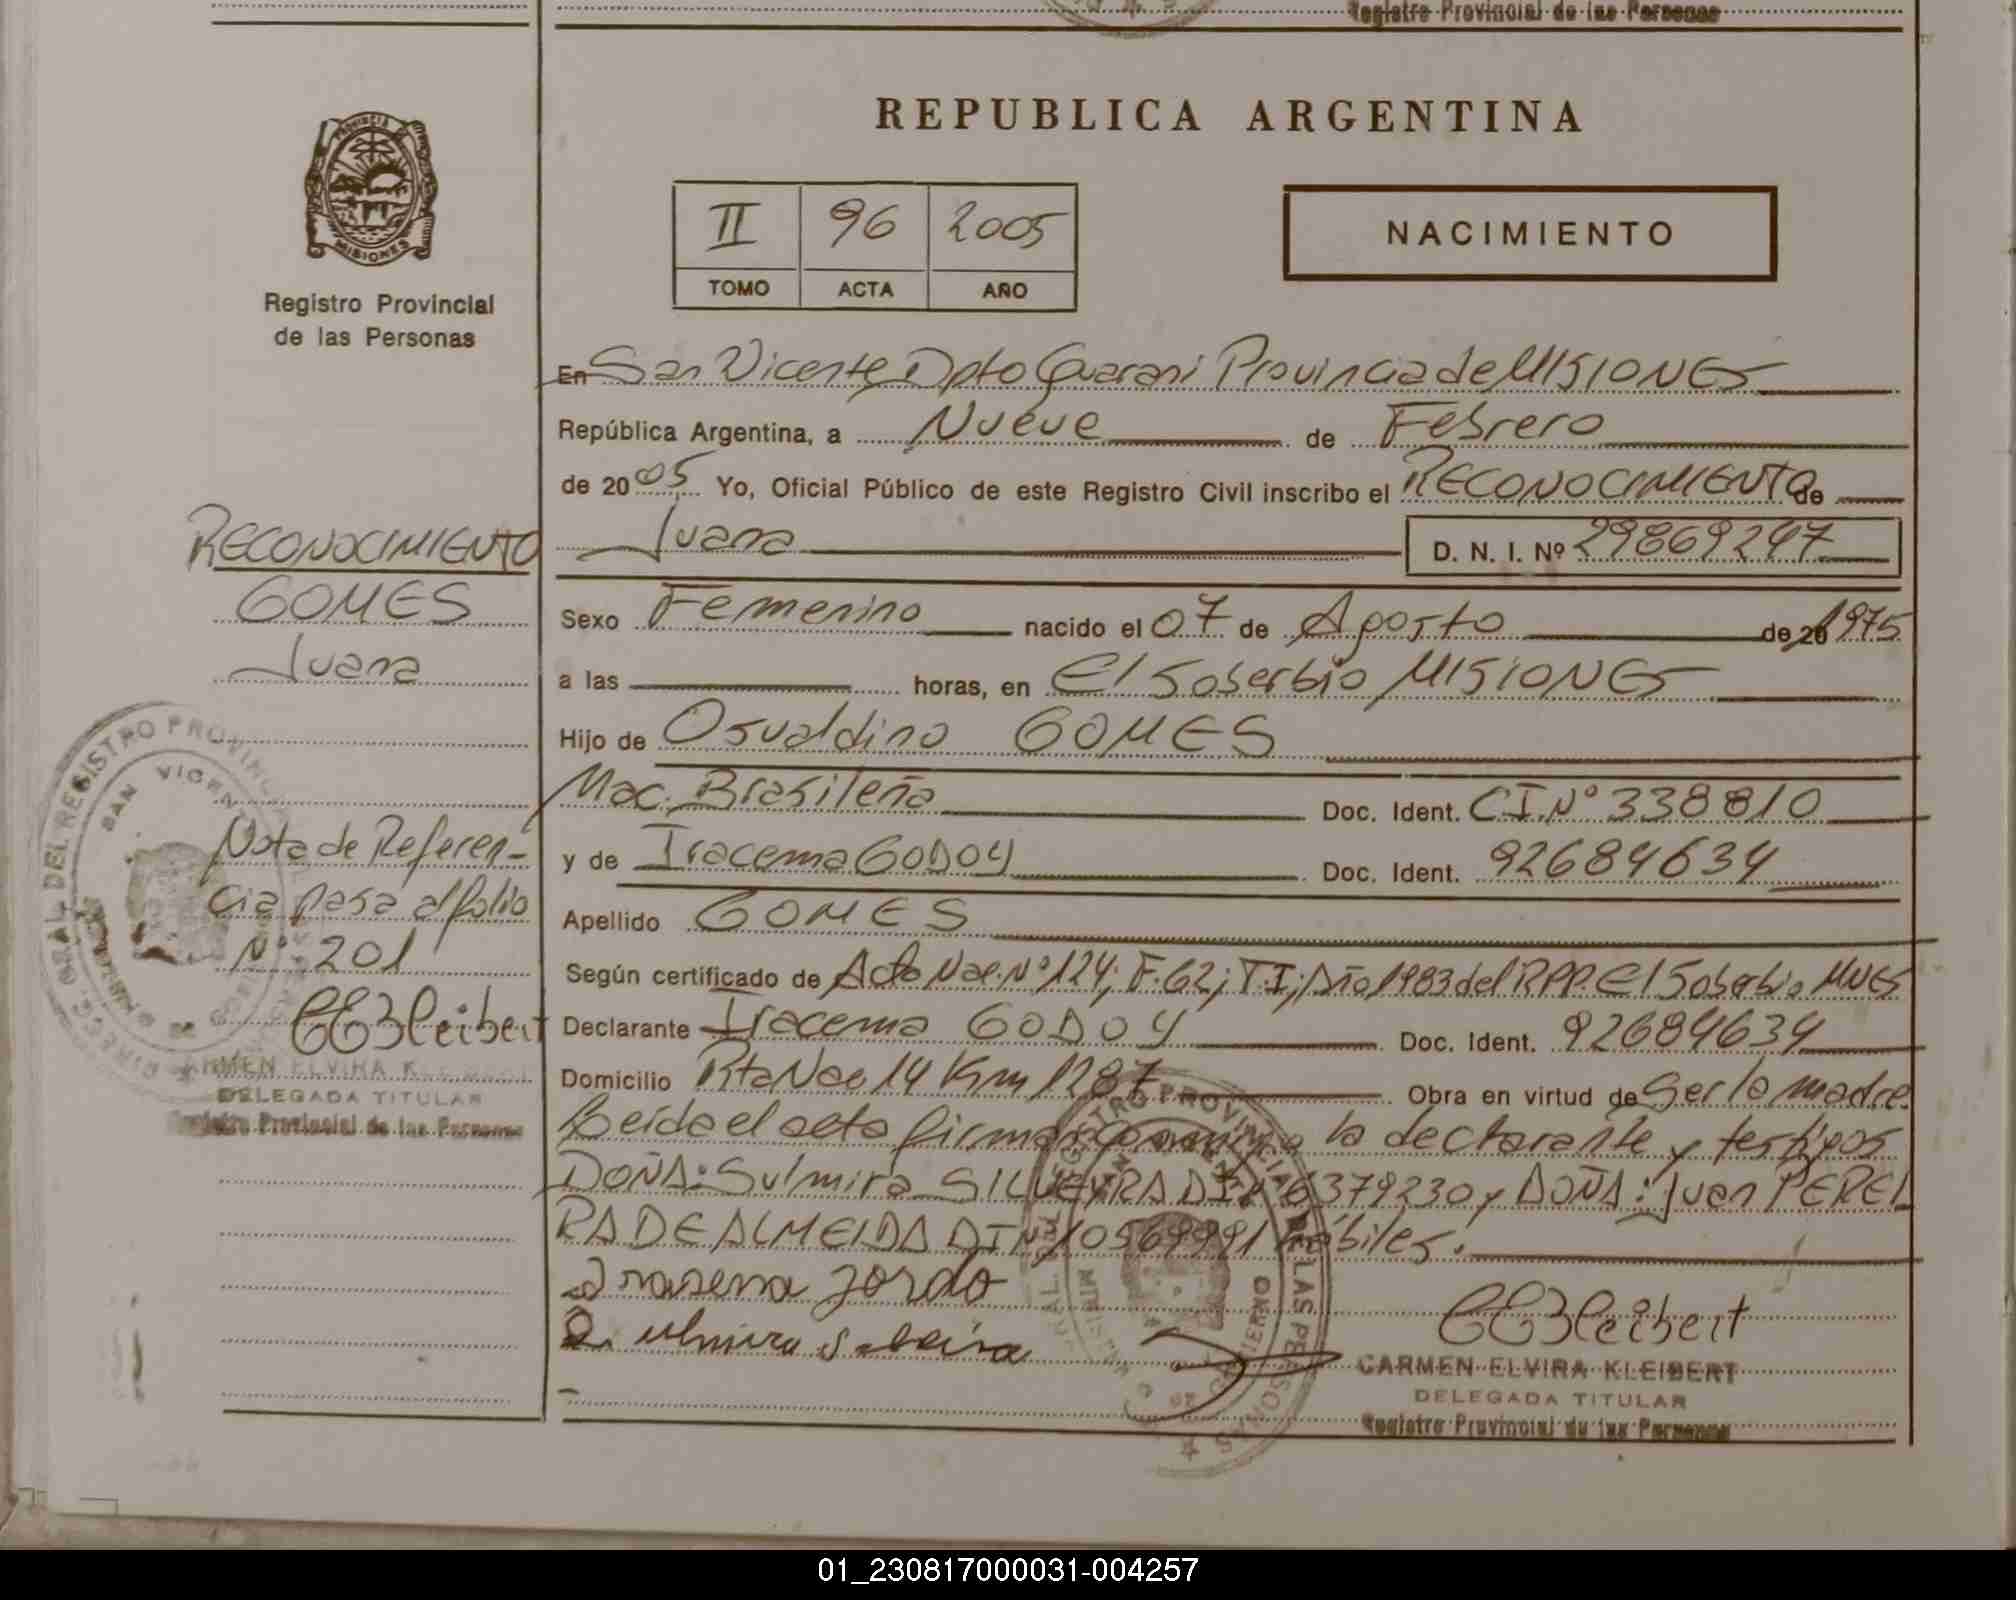 Registro Provincial de las Personas
PROVINCIA DE
MISIONES
Registro Provincial
de las Personas
RECONOCIMIENTO
GOMES
Juana
Nota de Referen-
cia pasa al folio
Nº 201
CEKleibert
CARMEN ELVIRA KLEIBERT
DELEGADA TITULAR
Registro Provincial de las Personas
DIRECC. GRAL. DEL REGISTRO PROVINCIAL
SAN VICENTE
REPUBLICA ARGENTINA
II 96 2005
TOMO ACTA AÑO
NACIMIENTO
En San Vicente Dpto Guarani Provincia de MISIONES
República Argentina, a Nueve de Febrero
de 2005 Yo, Oficial Público de este Registro Civil inscribo el RECONOCIMIENTO de
Juana D. N. I. Nº 29869247
Sexo Femenino nacido el 07 de Agosto de 20 1975
a las horas, en El Soberbio MISIONES
Hijo de Osvaldino GOMES
Nac. Brasileña Doc. Ident. CI.Nº 338810
y de Iracema GODOY Doc. Ident. 92684634
Apellido GOMES
Según certificado de Acta Nac. Nº 124; F.62; T.I; Año 1983 del RPP. El Soberbio MNES
Declarante Iracema GODOY Doc. Ident. 92684634
Domicilio Rta Nac 14 Km 1287 Obra en virtud de Ser la madre
Leída el acta firman conmigo la declarante y testigos
DOÑA: Sulmira SILVEYRA DIN 6379230 y DOÑA: Juan PEREI
RA DE ALMEIDA DIN 10569991 hábiles.
CEKleibert
CARMEN ELVIRA KLEIBERT
DELEGADA TITULAR
Registro Provincial de las Personas
REGISTRO PROVINCIAL DE LAS PERSONAS
SAN VICENTE
01_230817000031-004257